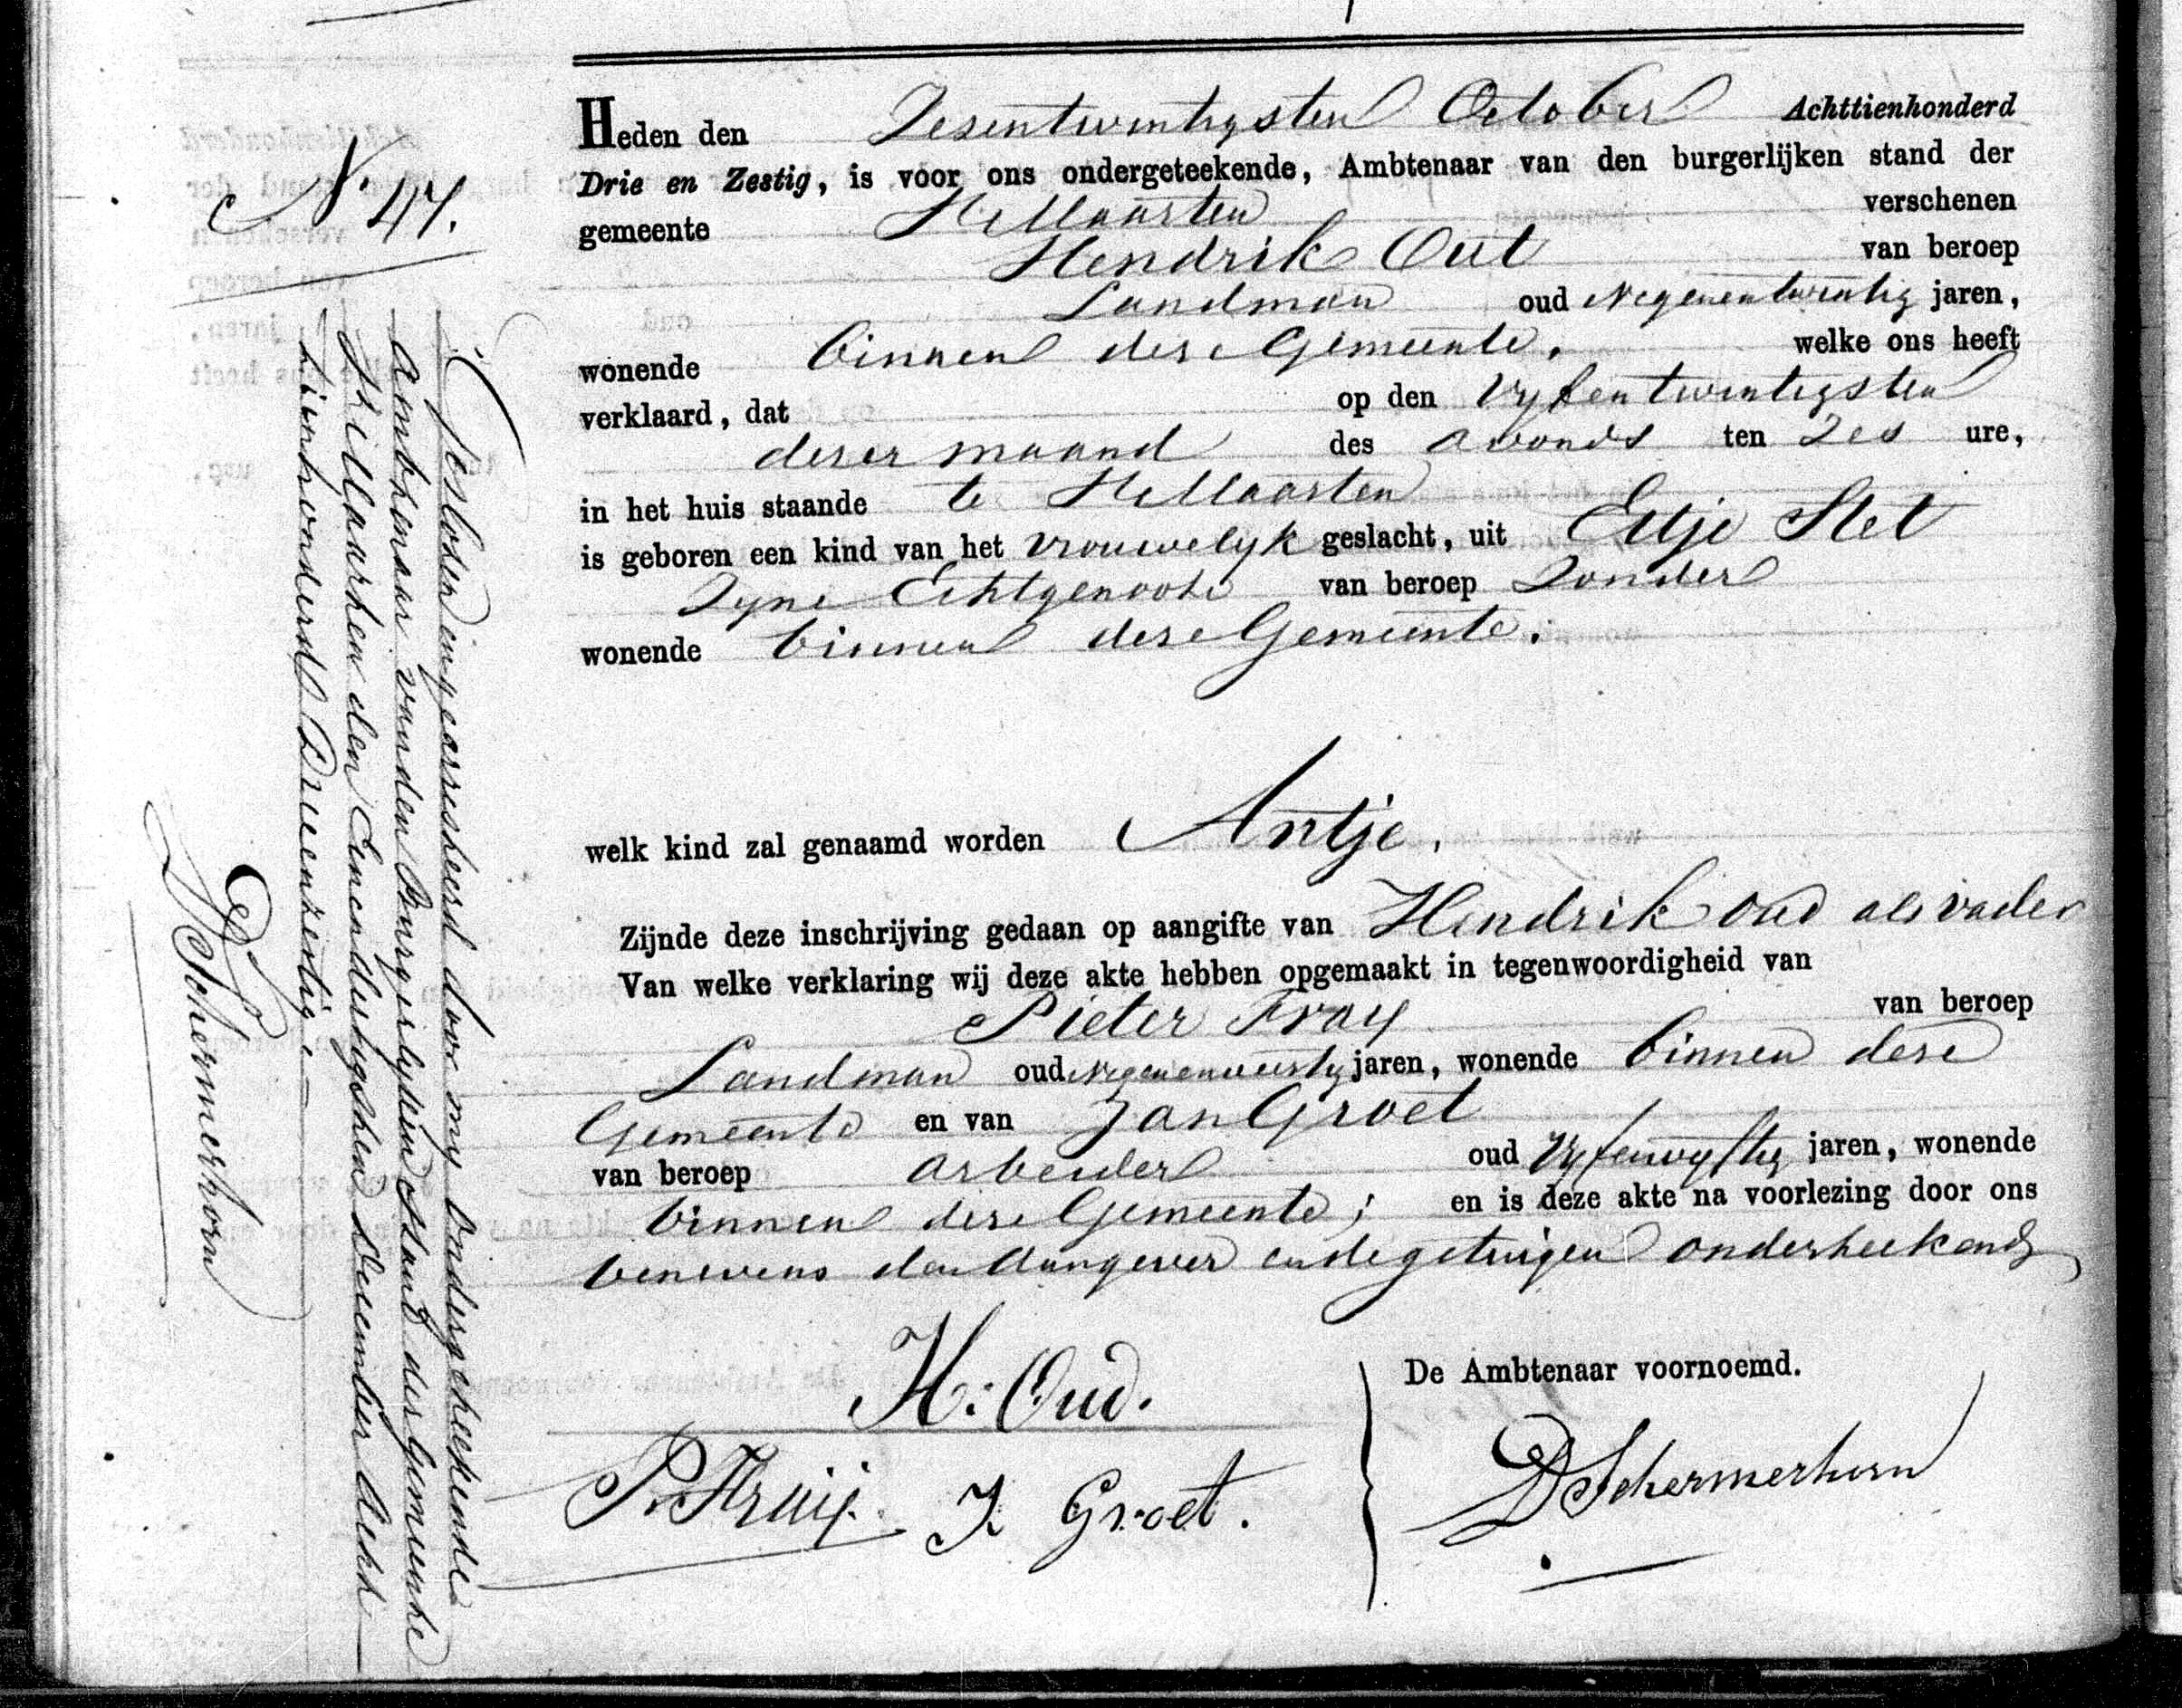 N° 47.
Heden den Zesentwintigsten October Achttienhonderd
Drie en Zestig, is voor ons ondergeteekende, Ambtenaar van den burgerlijken stand der
gemeente St Maarten verschenen
Hendrik Out van beroep
Landman oud Negenentwintig jaren,
wonende binnen dese Gemeente. welke ons heeft
verklaard, dat op den Vyfentwintigsten
deser maand des avonds ten Zes ure,
in het huis staande te St Maarten
is geboren een kind van het vrouwelyk geslacht, uit Eltje Slet
Zyne Echtgenoote van beroep Zonder
wonende binnen dese Gemeente.
welk kind zal genaamd worden Antje.
Zijnde deze inschrijving gedaan op aangifte van Hendrik Oud als vader
Van welke verklaring wij deze akte hebben opgemaakt in tegenwoordigheid van
Pieter van beroep
Landman oud jaren, wonende binnen dese
Gemeente en van Jan Groet
van beroep arbeider oud Vyfenvyftig jaren, wonende
binnen dese Gemeente; en is deze akte na voorlezing door ons
benevens den Aangever en de getuigen onderteekend
H. Oud.
De Ambtenaar voornoemd.
P. J Groet.
D Schermerhorn
Gesloten en gearresteerd door my ondergeteekende
Ambtenaar van den Burgerlyken Stand der Gemeente
St Maarten den Eenendertigsten December Acht
tienhonderd Drieenzestig.
D Schermerhorn